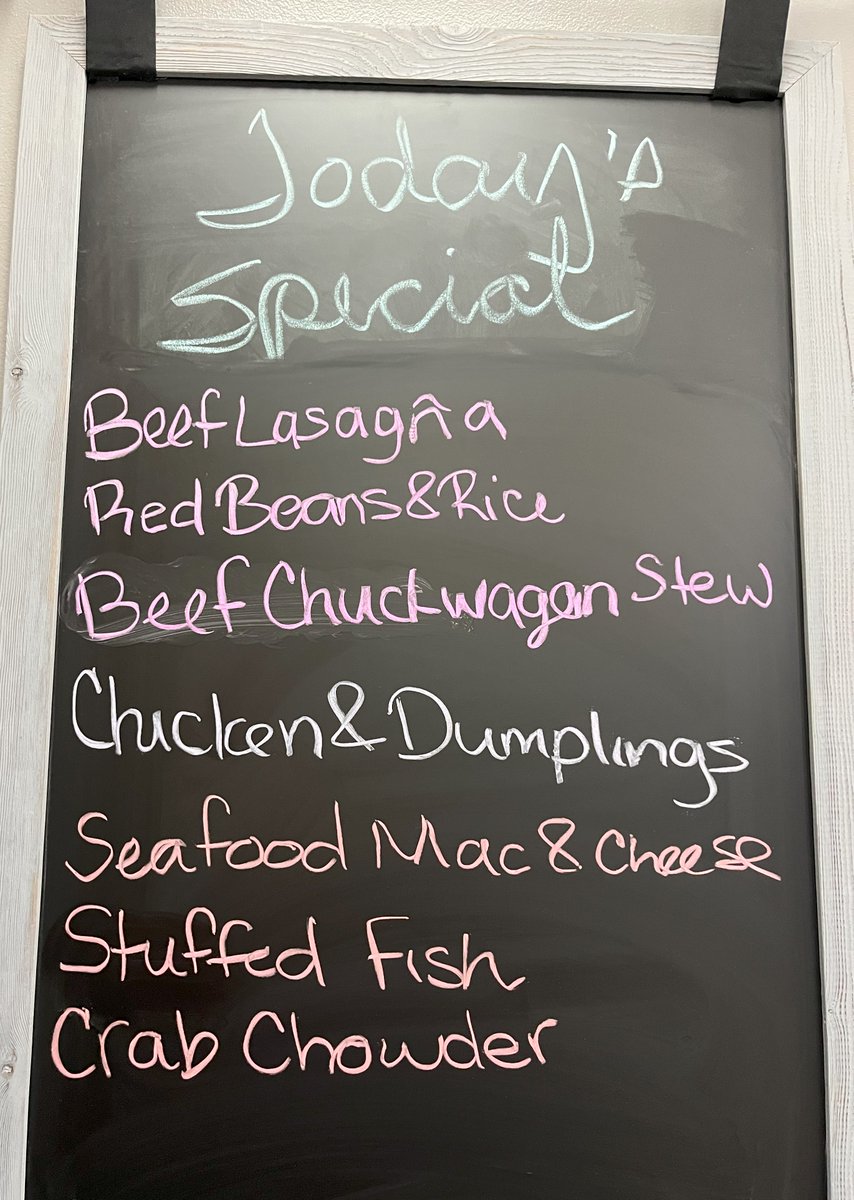 Today's
Special
Beef Lasagña
Red Beans & Rice
Beef Chuckwagon Stew
Chicken & Dumplings
Seafood Mac & Cheese
Stuffed Fish
Crab Chowder